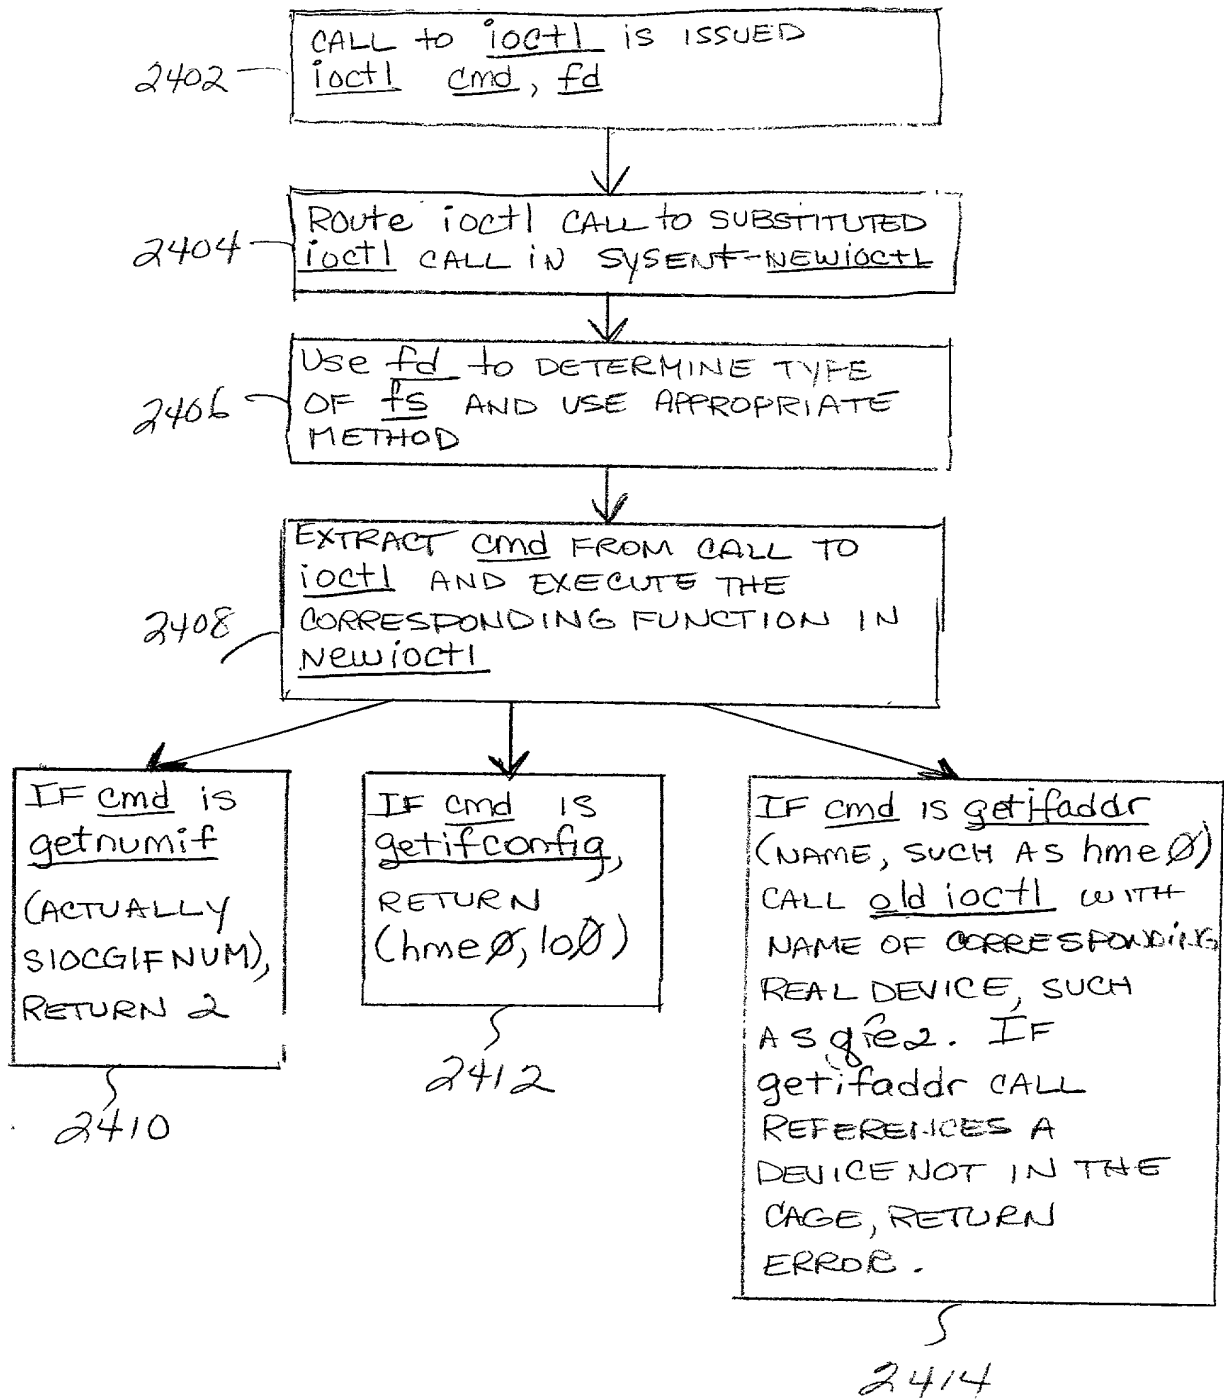 CALL to ioctl is ISSUED
ioctl cmd, fd
2402
Route ioctl CALL to SUBSTITUTED
ioctl CALL IN SYSENT-NEWIOCTL
2404
Use fd to DETERMINE TYPE
OF fs AND USE APPROPRIATE
METHOD
2406
EXTRACT cmd FROM CALL TO
ioctl AND EXECUTE THE
CORRESPONDING FUNCTION IN
Newioctl
2408
IF cmd is
getnumif
(ACTUALLY
SIOCGIFNUM),
RETURN 2
2410
IF cmd is
getifconfig,
RETURN
(hmeØ, loØ)
2412
IF cmd is getifaddr
(NAME, SUCH AS hmeØ)
CALL old ioctl WITH
NAME OF CORRESPONDING
REAL DEVICE, SUCH
AS qfe2. IF
getifaddr CALL
REFERENCES A
DEVICE NOT IN THE
CAGE, RETURN
ERROR.
2414